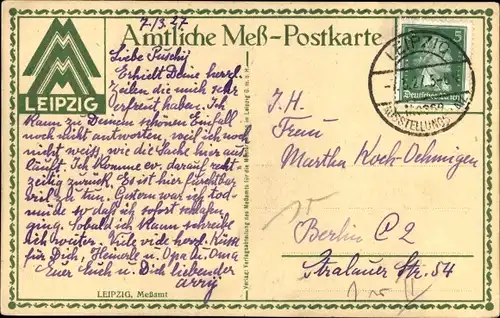 7./3.27
Amtliche Meß-Postkarte
LEIPZIG
Liebe
Erhielt Deine herzl.
Zeilen die mich sehr
erfreut haben. Ich
kann zu Deinem schönen Einfall
noch nicht antworten, weil ich noch
nicht weiß, wie die Sache hier aus
läuft. Ich komme ev. darauf recht-
zeitig zurück. Es ist hier furchtbar
viel zu tun. Gestern war ich tod
müde so daß ich sofort schlafen
ging. Sobald ich kann schreibe
ich weiter. Viele viele herzl. Küsse
für Dich, u. Opa u. Oma
Euer Euch u. Dich liebender
LEIPZIG, Meßamt
LEIPZIG
5
Deutsches Reich
I. H.
Frau
Martha Koch-Oehmigen
Berlin C 2
Stralauer Str. 54